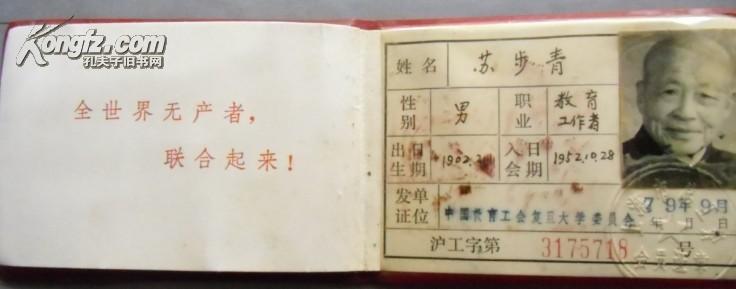 Kongfz.com
孔夫子旧书网
全世界无产者，
联合起来！
姓名 苏步青
性别 男 职业 教育工作者
出生日期 1902. 入会日期 1952.10.28
发证单位 中国教育工会复旦大学委员会 79年9月
年 月 日
沪工字第 3175718 号